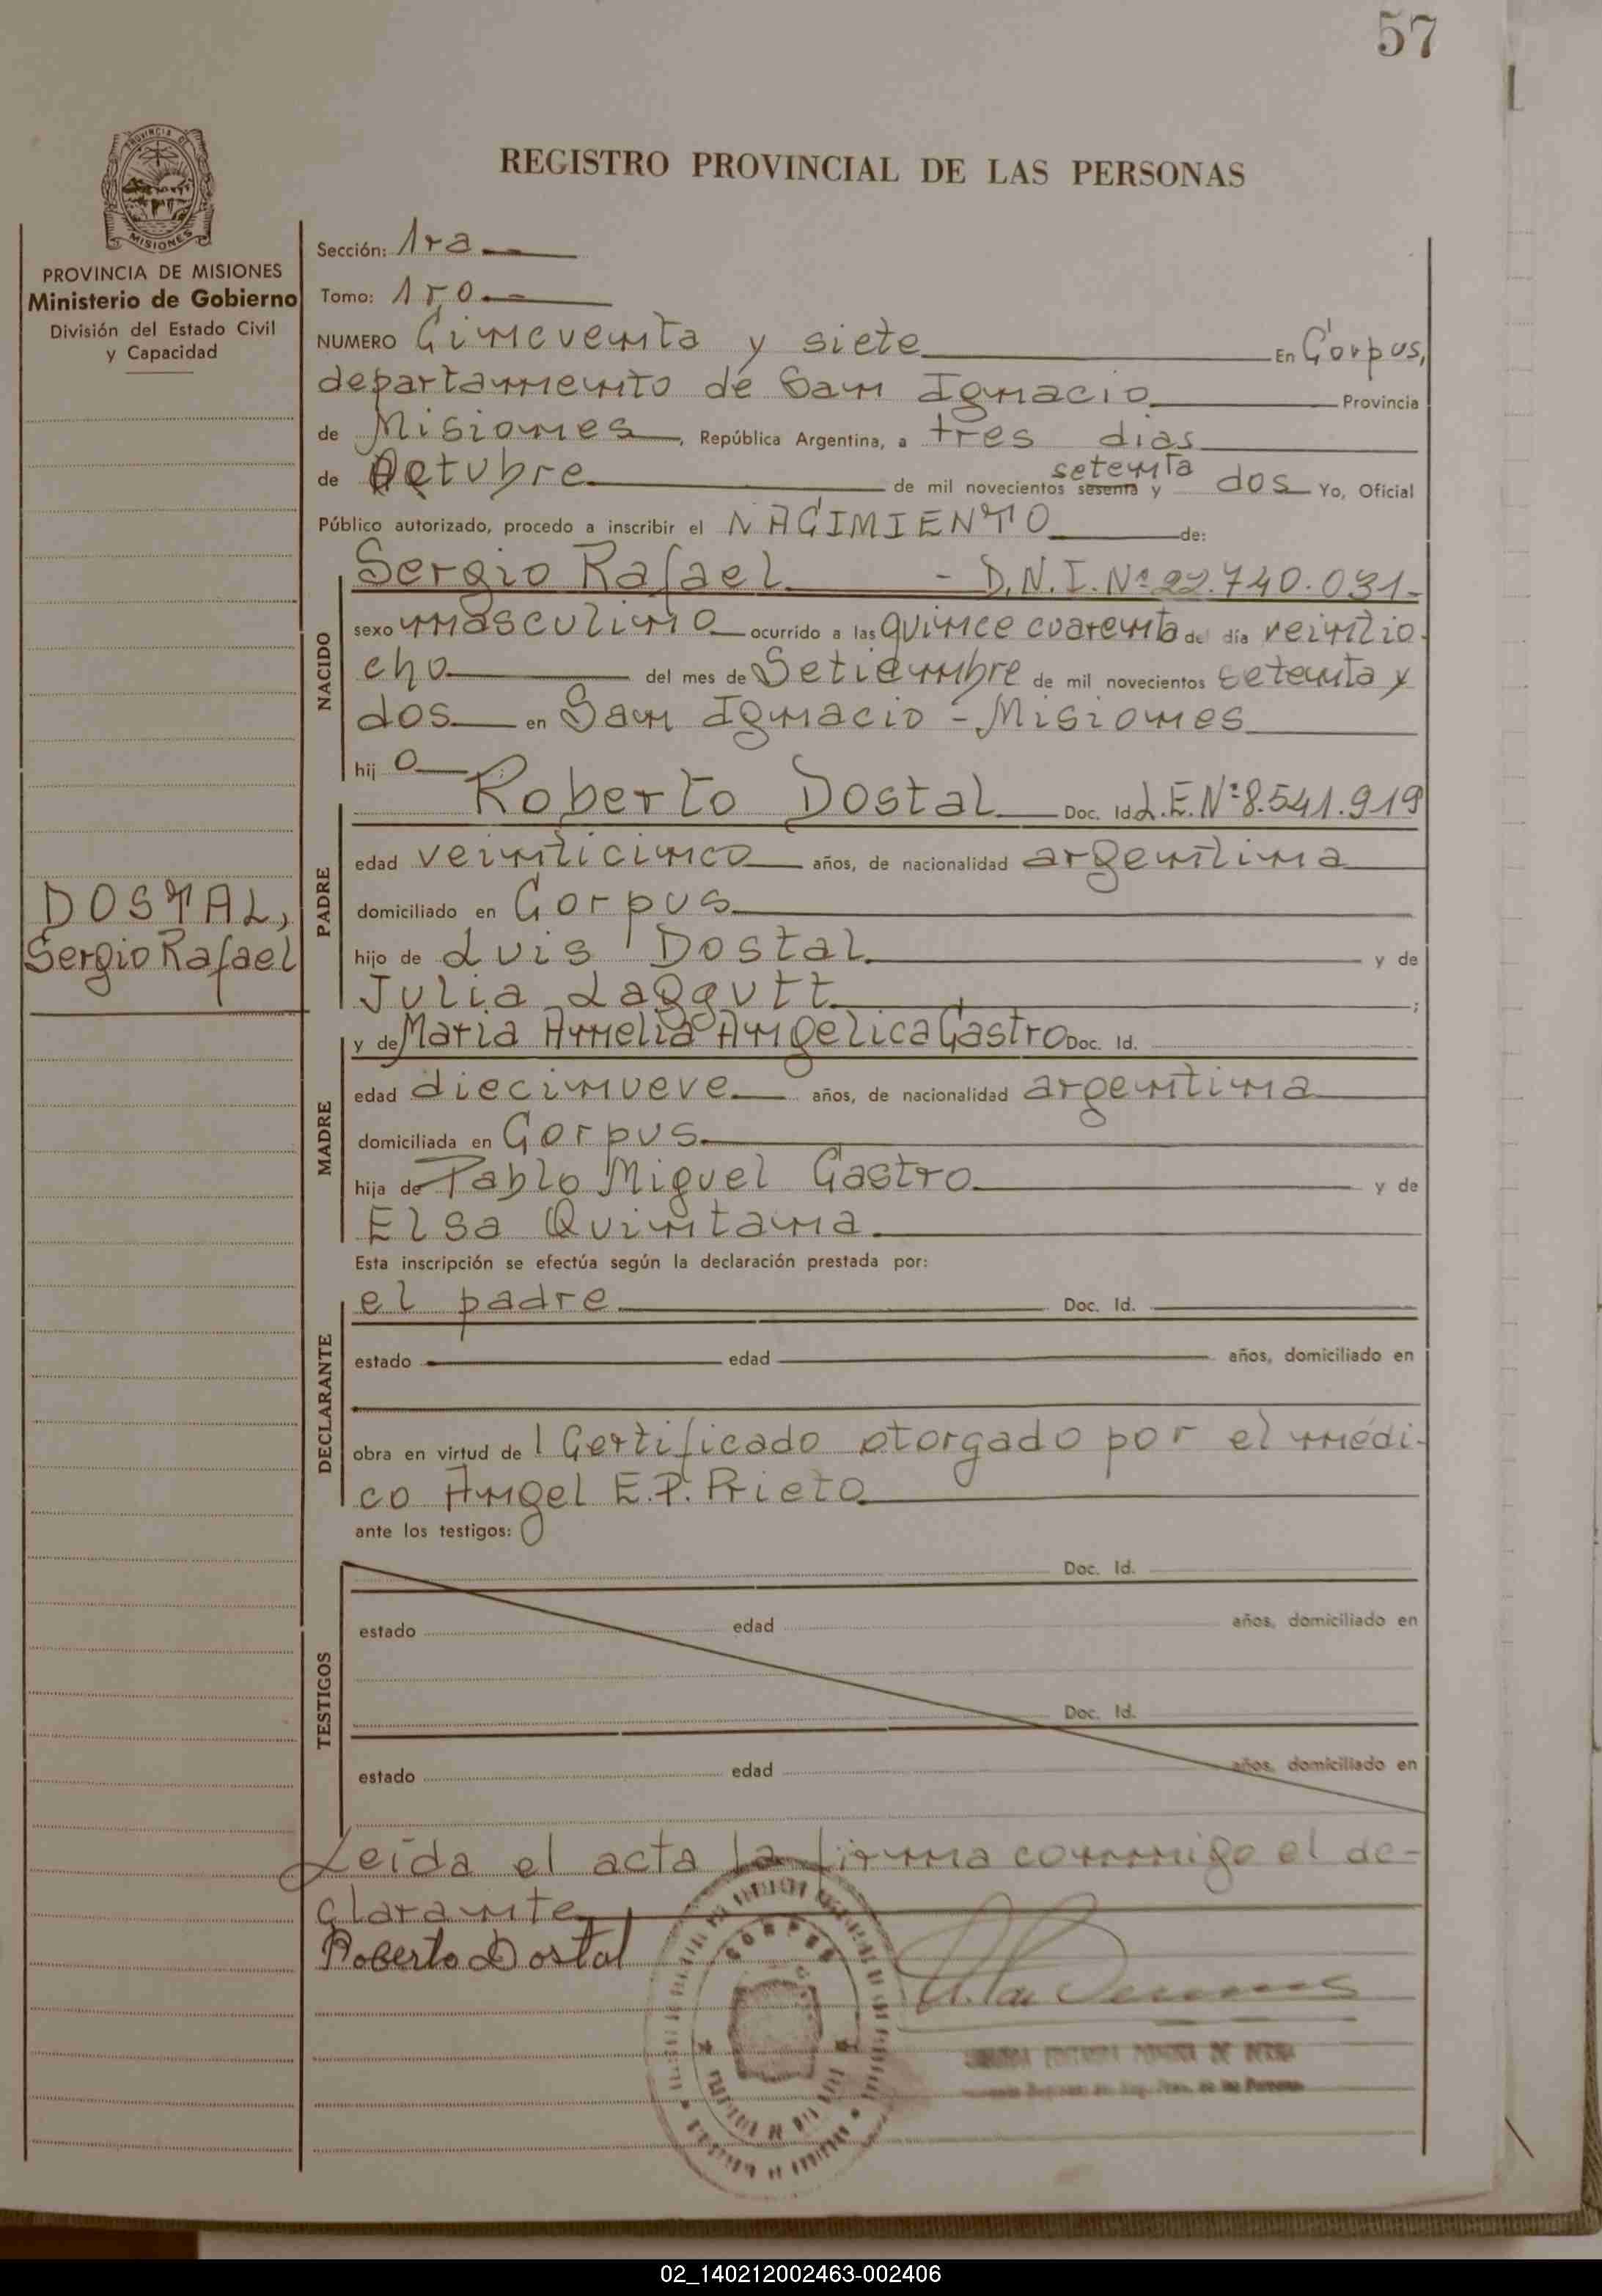 57
REGISTRO PROVINCIAL DE LAS PERSONAS
PROVINCIA DE MISIONES
PROVINCIA DE MISIONES
Ministerio de Gobierno
División del Estado Civil
y Capacidad
DOSTAL,
Sergio Rafael
Sección: 1ra
Tomo: 1ro
NUMERO Cincuenta y siete En Corpus,
departamento de San Ignacio Provincia
de Misiones, República Argentina, a tres dias
de Octubre de mil novecientos sesenta setenta y dos Yo, Oficial
Público autorizado, procedo a inscribir el NACIMIENTO de:
NACIDO
Sergio Rafael - D.N.I. Nº 22.740.031-
sexo masculino ocurrido a las quince cuarenta del día veintio-
cho del mes de Setiembre de mil novecientos setenta y
dos en San Ignacio - Misiones
hij o
PADRE
Roberto Dostal Doc. Id. L.E. Nº 8.541.919
edad veinticinco años, de nacionalidad argentina
domiciliado en Corpus
hijo de Luis Dostal y de
Julia Laggutt ;
MADRE
y de Maria Amelia Angelica Castro Doc. Id.
edad diecinueve años, de nacionalidad argentina
domiciliada en Corpus
hija de Pablo Miguel Castro y de
Elsa Quintana
Esta inscripción se efectúa según la declaración prestada por:
DECLARANTE
el padre Doc. Id.
estado edad años, domiciliado en
obra en virtud de l Certificado otorgado por el médi-
co Angel E.P. Prieto
ante los testigos:
TESTIGOS
Doc. Id.
estado edad años, domiciliado en
Doc. Id.
estado edad años, domiciliado en
Leída el acta la firma conmigo el de-
clarante
Roberto Dostal
CORPUS
02_140212002463-002406